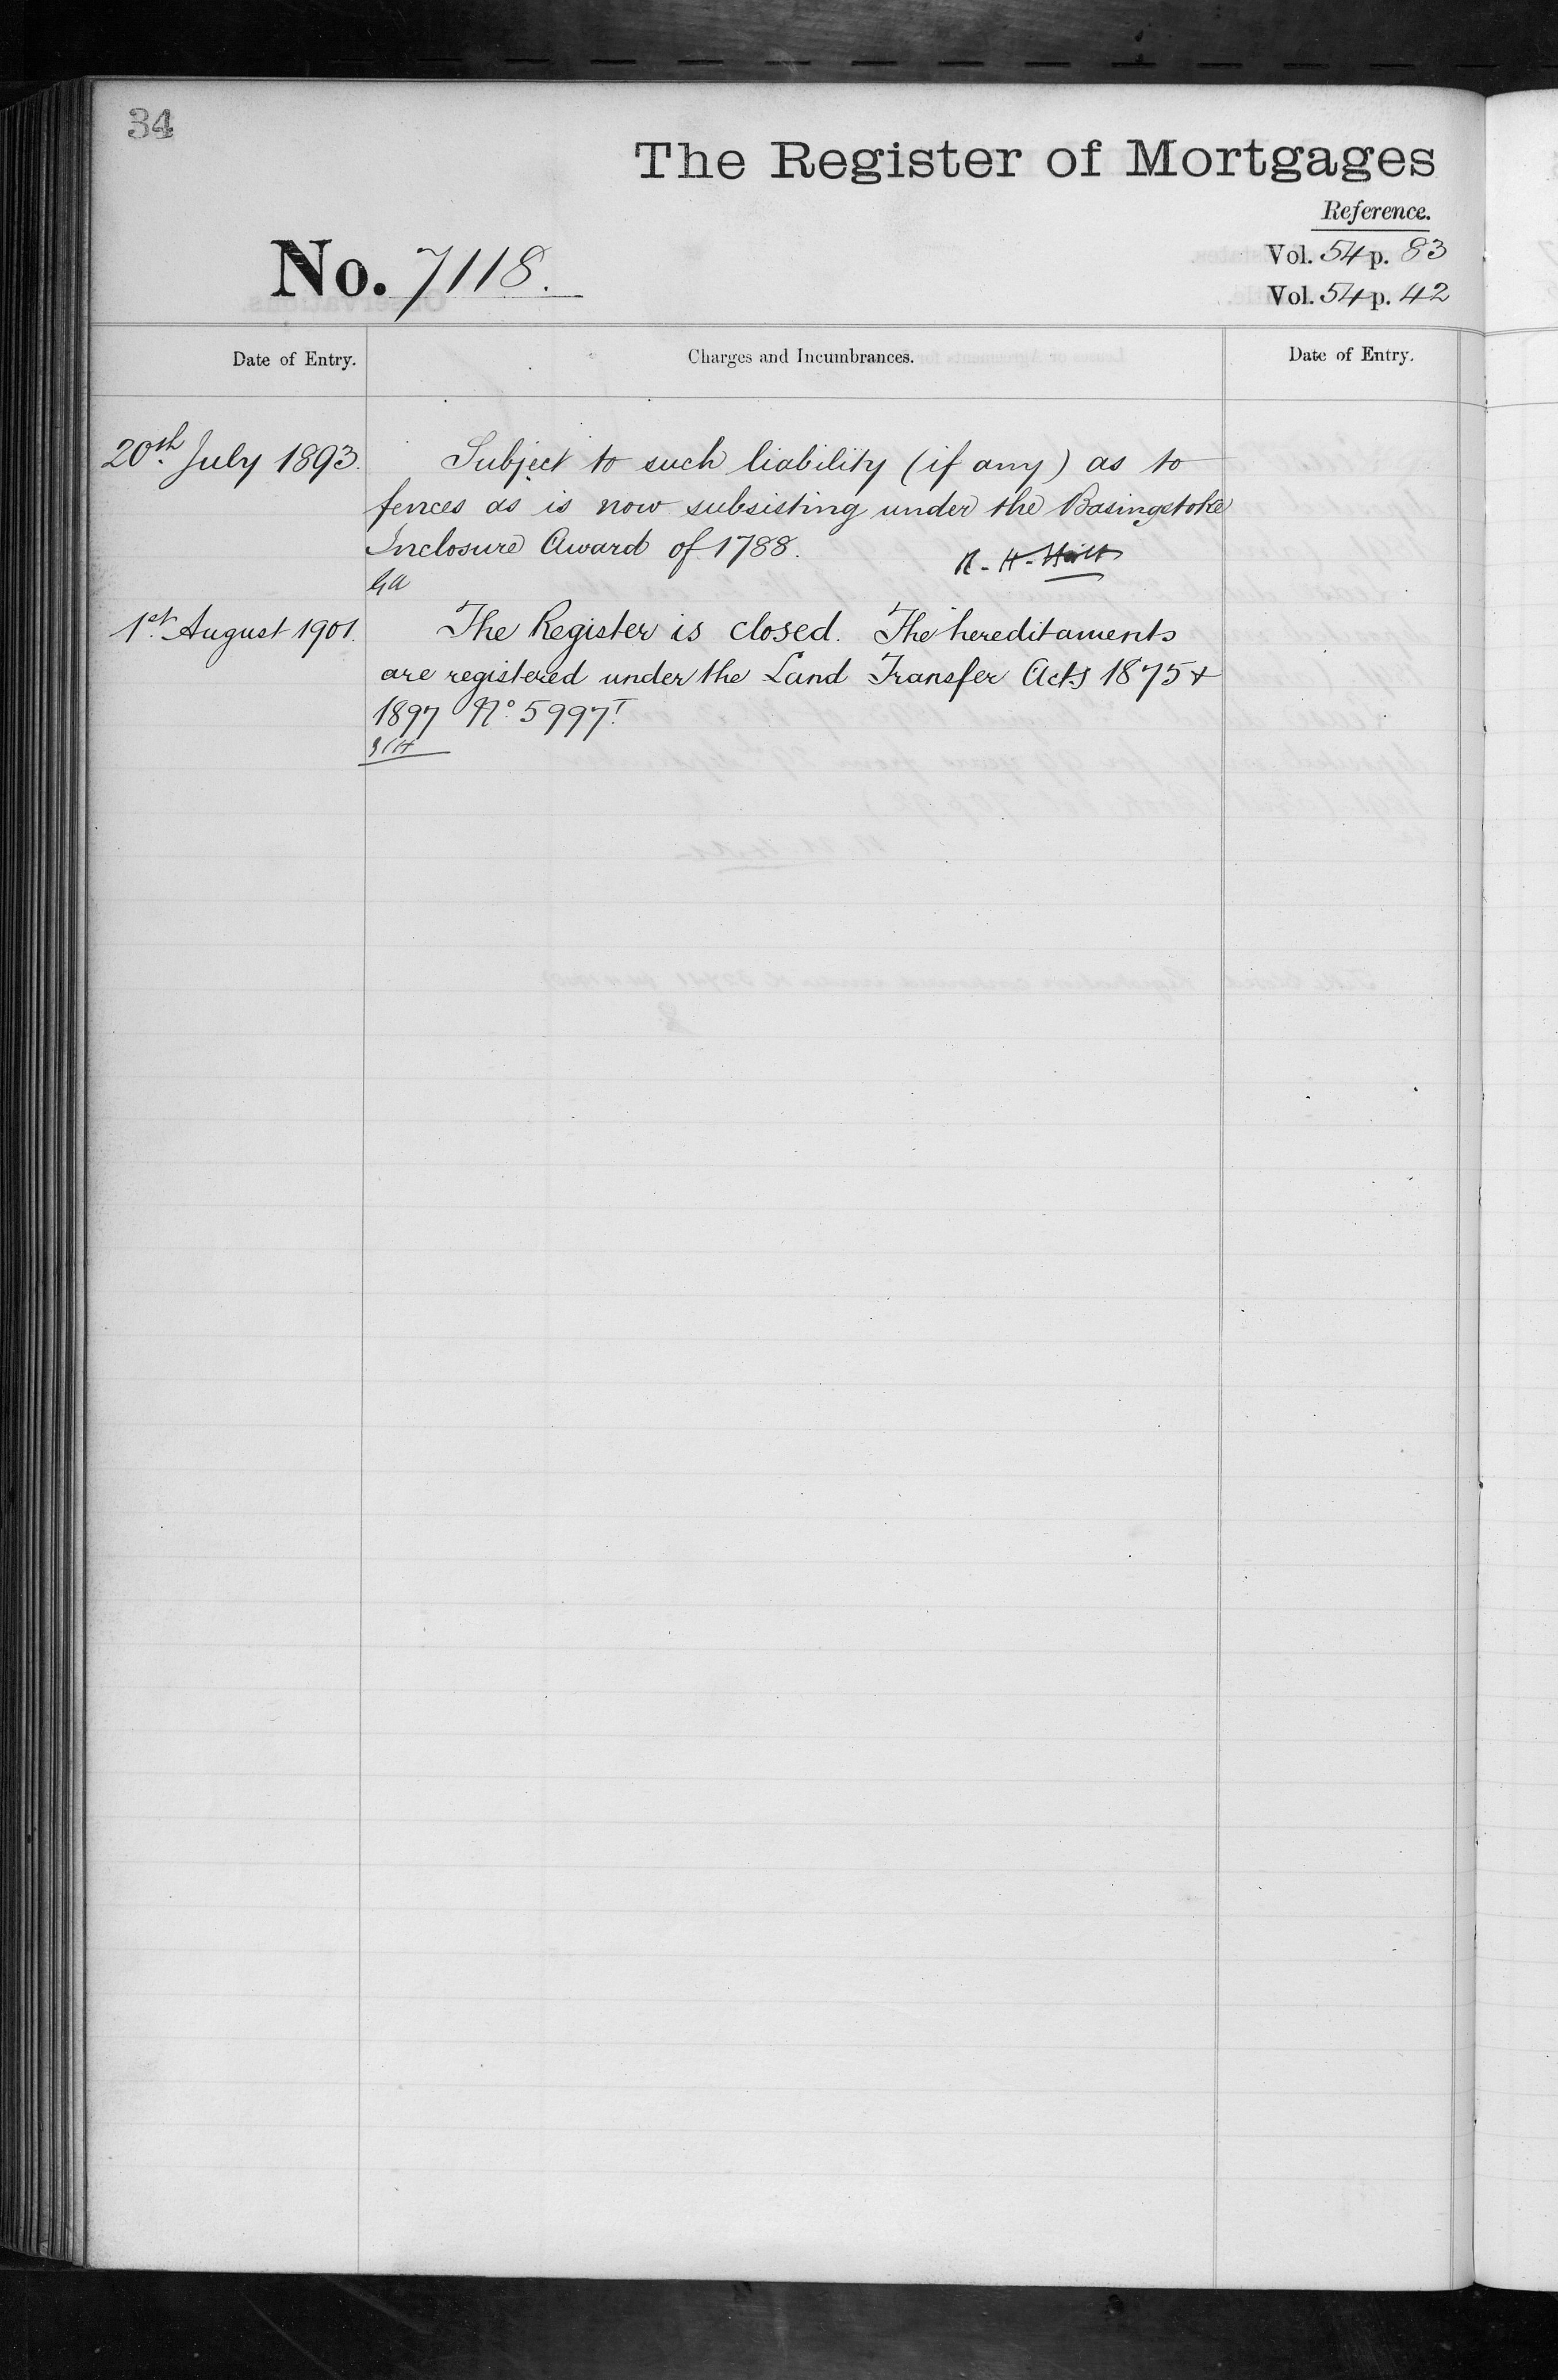 34
The Register of Mortgages
Reference.
No. 7118.
Vol. 54 p. 83
Vol. 54 p. 42
Date of Entry.
Charges and Incumbrances.
Date of Entry.
20th July 1893.
Subject to such liability (if any) as to
fences as is now subsisting under the Basingstoke
Inclosure Award of 1788.
R. H. Holt
GA
1st August 1901.
The Register is closed. The hereditaments
are registered under the Land Transfer Acts 1875 &
1897 No 5997T.